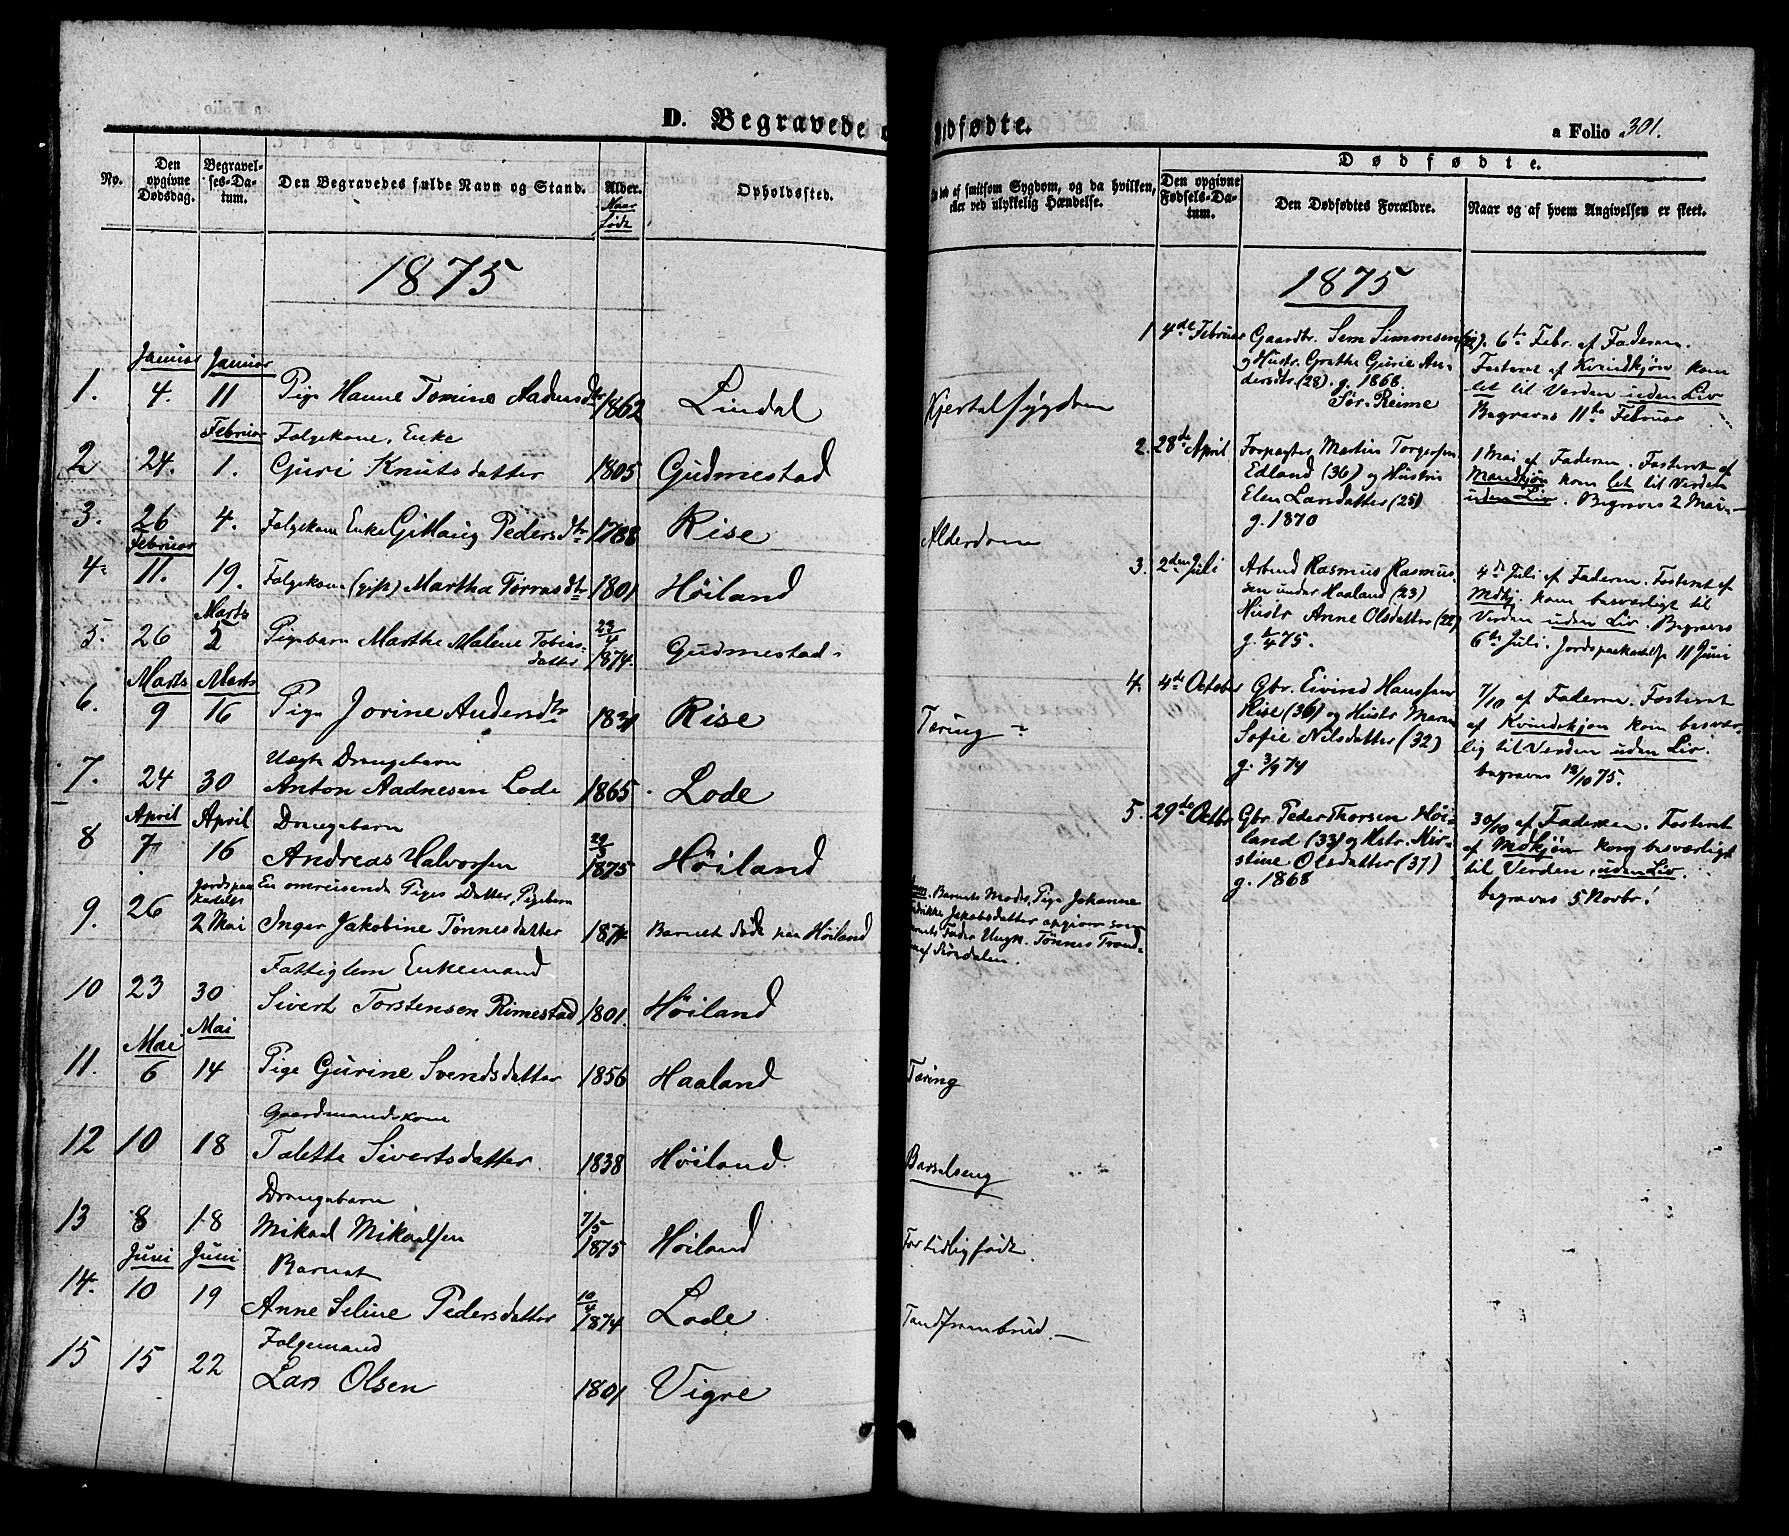 D. Begravede
No.
Den opgivne Dødsdag.
Begravelses-Datum.
Den Begravedes fulde Navn og Stand.
Alder.
Naar født
Opholdssted.
1875
Januar Januar
1. 4. 11 Pige Hanne Tomine Aadnesdtr 1862 Lindal
Februar Folgekone, Enke
2 24. 1. Guri Knutsdatter 1805 Gudmestad
3. 26 4. Folgekone Enke Pedersdtr 1788 Rise
Februar
4. 11. 19. Folgekone (gift) Martha 1801 Høiland
Marts
5. 26 2 Pigebarn Marthe Malene Tobias-
datter 23/4 1874. Gudmestad.
Marts Marts
6. 9 16 Pige Jorine Andersdtr 1831 Rise
Uægte Drengebarn
7. 24 30 Anton Aadnesen Lode 1865. Lode
April April Drengebarn
8 7 16 Andreas Halvorsen 1875 Høiland
En omreisende Piges Datter, Pigebarn
9. 26 2 Mai Inger Jakobine Tønnesdatter 1874 Barnet født paa Høiland
Fattiglem Enkemand
10 23 30 Sivert Torstensen Rimestad 1801. Høiland
Mai Mai
11. 6 14 Pige Gurine Svendsdatter 1856 Haaland
Gaardmandskone
12 10 18 Talette Sivertsdatter. 1838 Høiland.
Drengebarn
13 8 18 Mikael Mikaelsen 7/5 1875 Høiland
Juni Juni Barnet
14. 10 19 Anne Seline Pedersdatter 10/4 1874 Lode
Folgemand
15 15 22 Lars Olsen 1801 Vigre
dfødte.
a Folio 301.
af smitsom Sygdom, og da hvilken,
eller ved ulykkelig Hændelse.
Dødfødte.
Den opgivne Fødsels-Datum.
Den Dødfødtes Forældre.
Naar og af hvem Angivelsen er skeet.
1875
Hjertesygdom
Alderdom
Tæring
Barnets Moder, Pige Johanne
Jakobsdatter opgiver som
Barnets Fader Ungk. Tønnes
Tæring
Barselseng
For tidlig født
Tandfrembrud.
1. 4de Februar Gaardbr. Sem Simonsen
og Hustr. Grethe Gurie An-
dersdtr. (28). g. 1868.
Sør-Reime
6te Febr. af Faderen.
Fosteret af Kvindkjøn kom
let til Verden uden Liv
Begraves 11te Februar
2. 28de April Forpagter Martin Torgersen
Edland (36) og Hustru
Elen Larsdatter (25)
g. 1870
1 Mai af Faderen. Fosteret af
Mandkjøn kom let til Verden
uden Liv. Begraves 2 Mai.
3. 2den Juli Arbmd Rasmus Rasmus-
sen under Haaland (23)
Hustr Anne Olsdatter (22)
g. 75.
4de Juli af Faderen. Fosteret af
Mdkj. kom besværligt til
Verden uden Liv. Begraves
6te Juli. 11 Juni
4. 4de October Gbr. Eivind Hanssen
Rise (36) og Hustr Maren
Sofie Nilsdatter (32)
g. 3/9 74
7/10 af Faderen. Fosteret
af Kvindekjøn kom besvær-
lig til Verden uden Liv.
begraves 13/10 75.
5. 29de Octbr Gbr. Peder Thorsen Høi-
land (33) og Hstr. Kir-
stine Olsdatter (37)
g. 1868
30/10 af Faderen. Fosteret
af Mdkjøn kom besværligt
til Verden, uden Liv.
begraves 5 Novbr.